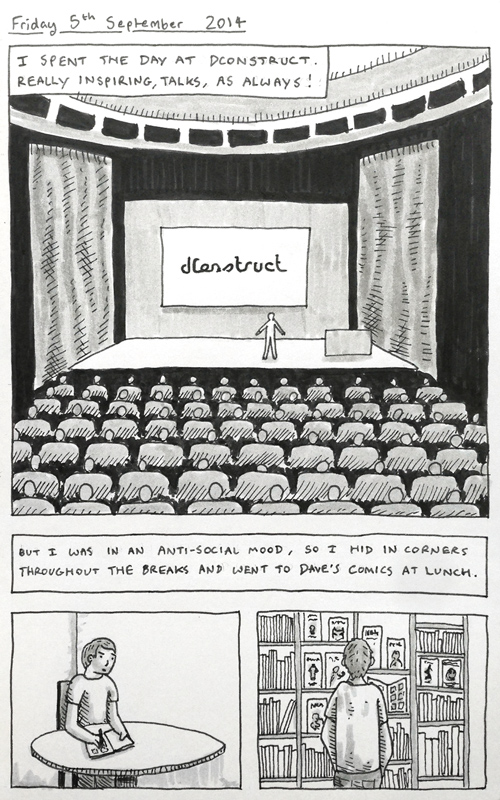 Friday 5th September 2014
I SPENT THE DAY AT DCONSTRUCT.
REALLY INSPIRING, TALKS, AS ALWAYS!
dConstruct
BUT I WAS IN AN ANTI-SOCIAL MOOD, SO I HID IN CORNERS
THROUGHOUT THE BREAKS AND WENT TO DAVE'S COMICS AT LUNCH.